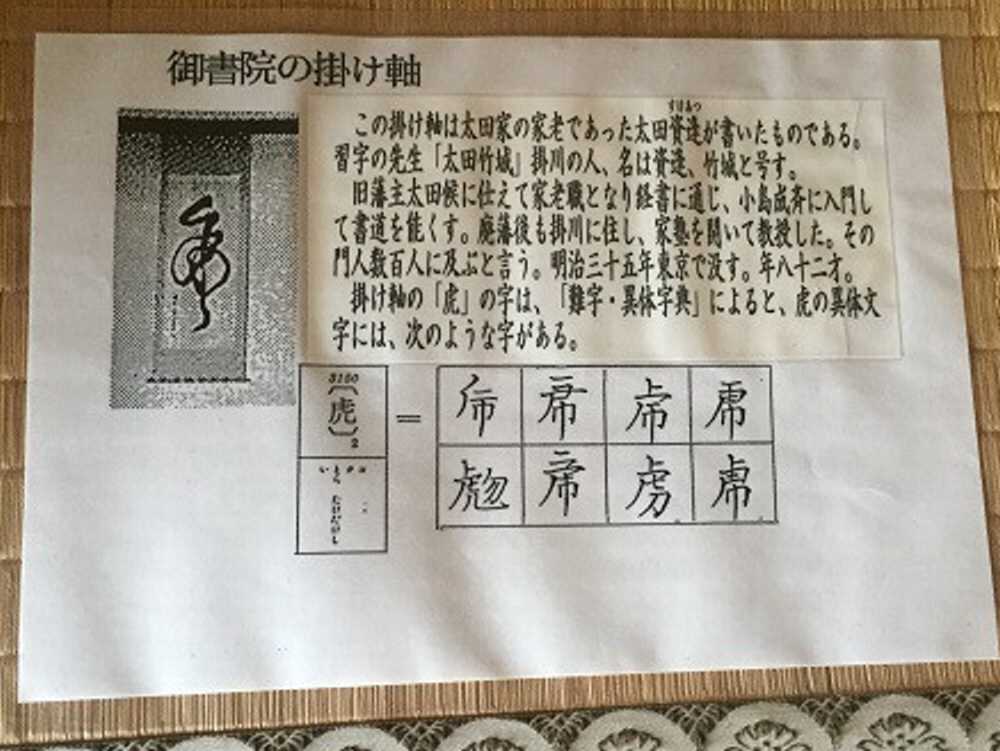 御書院の掛け軸
すけあつ
この掛け軸は太田家の家老であった太田資逢が書いたものである。
習字の先生「太田竹城」掛川の人、名は資逢、竹城と号す。
旧藩主太田候に仕えて家老職となり経書に通じ、小島成斉に入門し
て書道を能くす。廃藩後も掛川に住し、家塾を開いて教授した。その
門人数百人に及ぶと言う。明治三十五年東京で没す。年八十二才。
掛け軸の「虎」の字は、「難字・異体字典」によると、虎の異体文
字には、次のような字がある。
3160
〔虎〕2
=